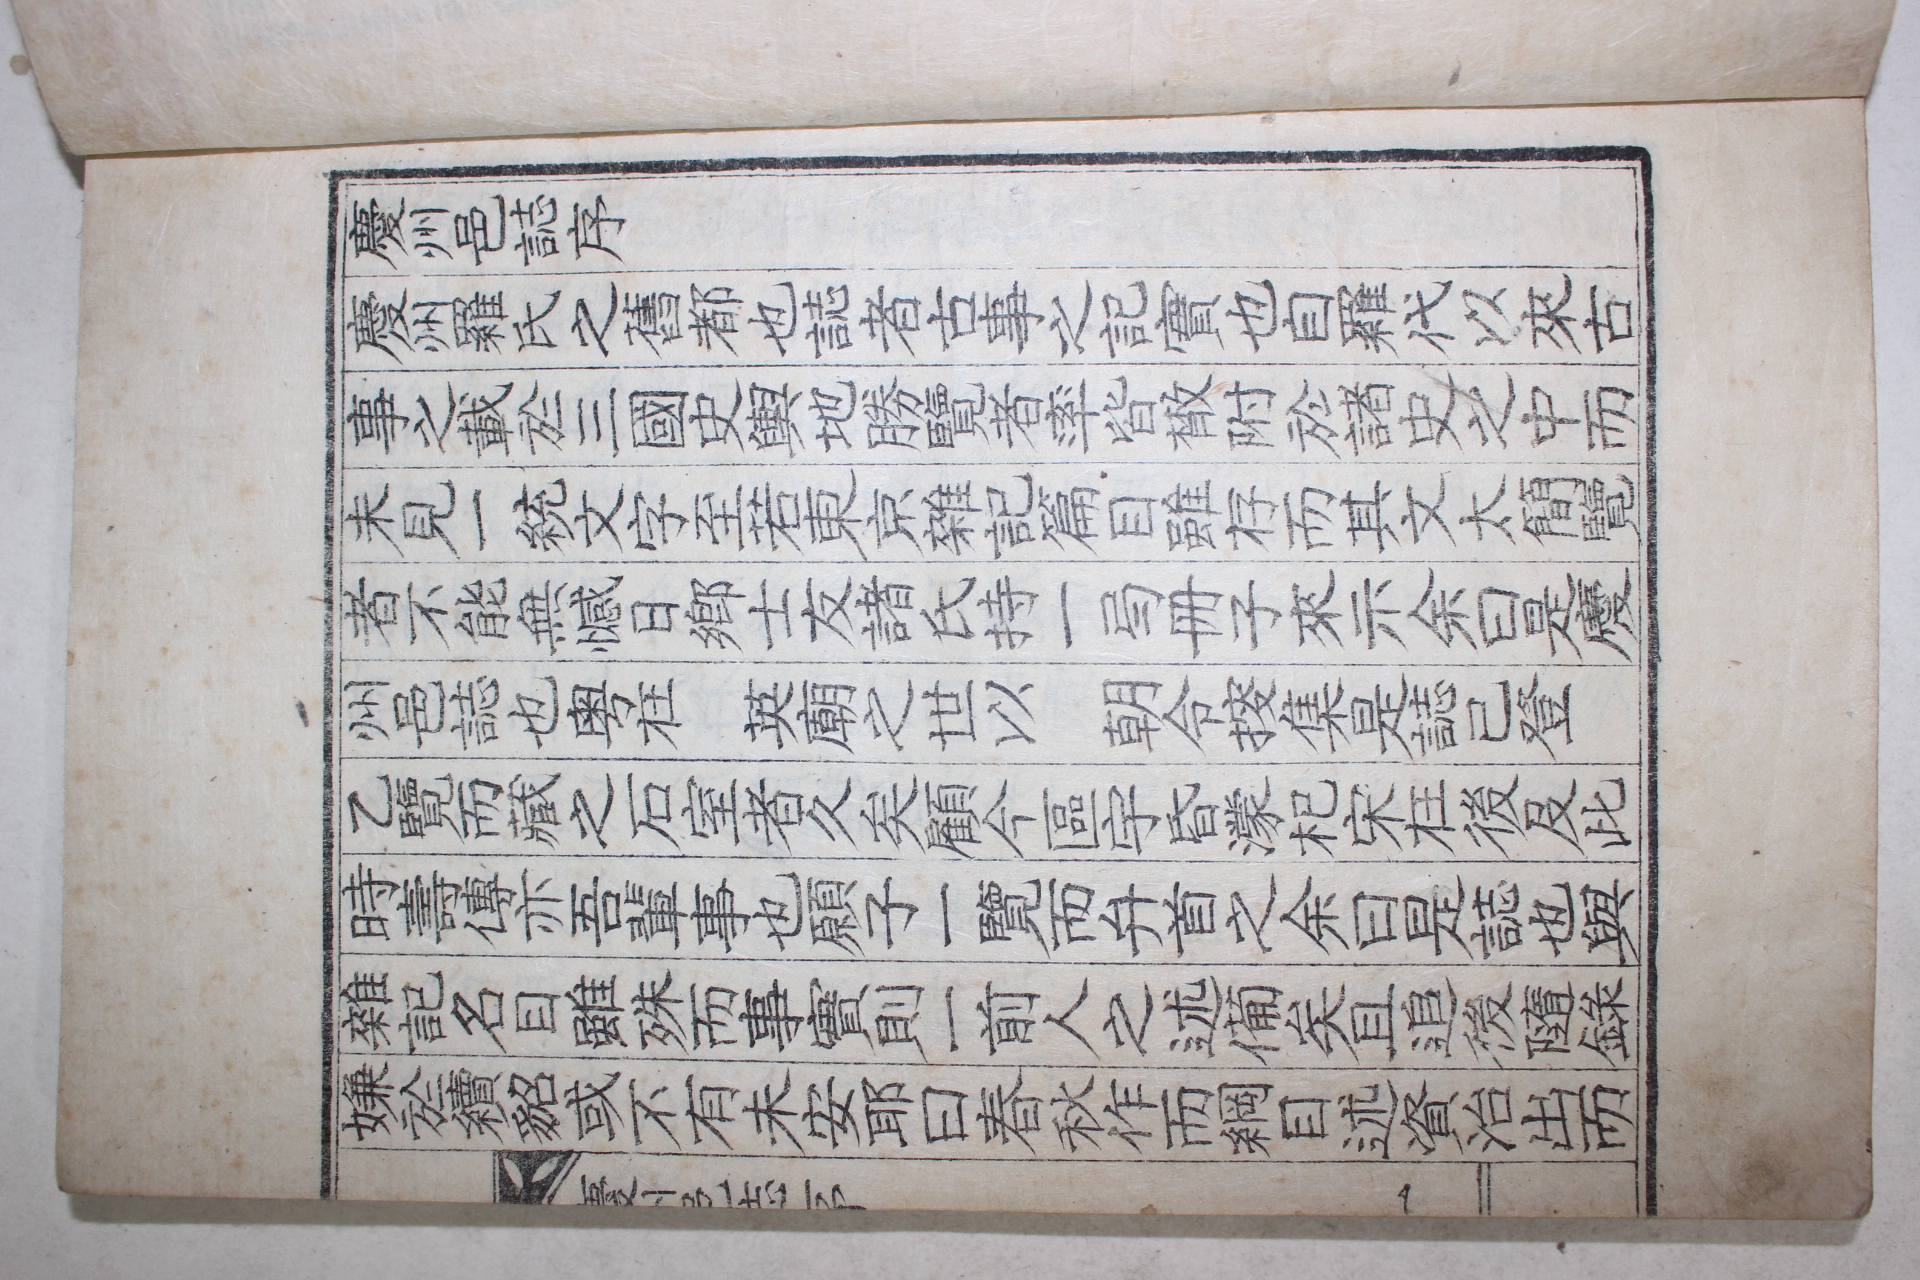 慶州邑誌序
慶州羅氏之舊都也誌者古事之記實也自羅代以來古
事之載於三國史輿地勝覽者率皆橵附於諸史之中而
未見一統文字至若東京雜記篇目雖存而其文太簡覽
者不能無憾日鄕士友諸氏持一弓冊子來示余曰是慶
州邑誌也粤在　英廟之世以　朝令按集是誌已登
乙覽而藏之石室者久矣顧今區宇昏濛杞宋在後及此
時壽傳亦吾輩事也願子一覽而弁首之余曰是誌也與
雜記名目雖殊而事實則一前人之述備矣且追後隨錄
嫌於續貂或不有未安耶曰春秋作而綱目述資治出而
慶州邑誌序